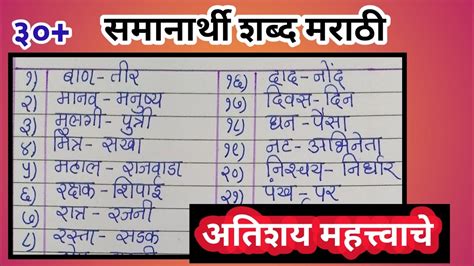 ३०+ समानार्थी शब्द मराठी
१) बाण - तीर
२) मानव - मनुष्य
३) मुलगी - पुत्री
४) मित्र - सखा
५) महाल - राजवाडा
६) रक्षक - शिपाई
७) रात्र - रजनी
८) रस्ता - सडक
१६) दाद - नोंद
१७) दिवस - दिन
१८) धन - पैसा
१९) नट - अभिनेता
२०) निश्चय - निर्धार
२१) पंख - पर
अतिशय महत्त्वाचे